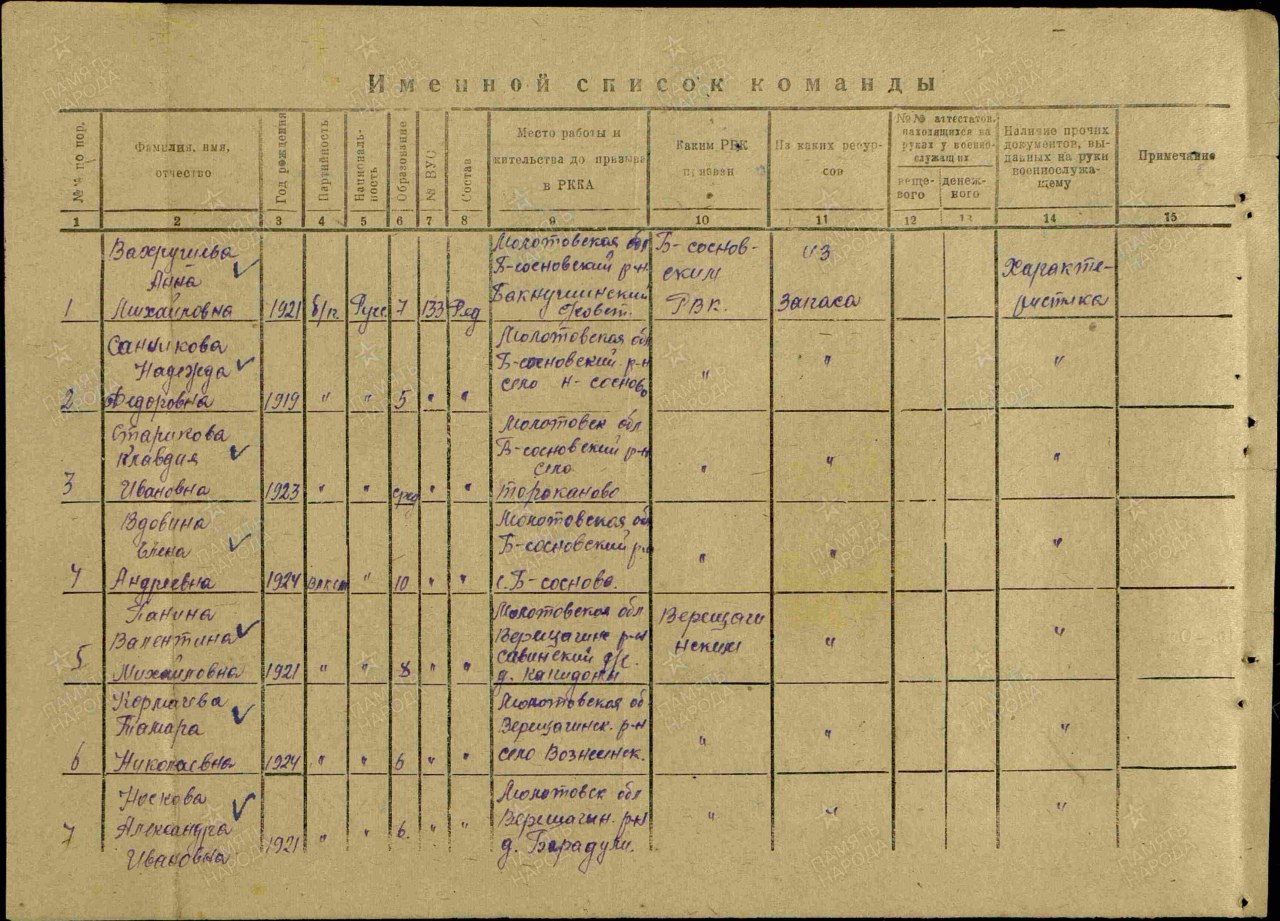 Именной список команды
№№ по пор.
Фамилия, имя, отчество
Год рождения
Партийность
Националь-ность
Образование
№ ВУС
Состав
Место работы и жительства до призыва в РККА
Каким РВК призван
Из каких ресур-сов
№№ аттестатов, находящихся на руках у военно-служащих
веще-вого
денеж-ного
Наличие прочих документов, вы-данных на руки военнослужа-щему
Примечание
1 2 3 4 5 6 7 8 9 10 11 12 13 14 15
Вахрушева
Анна
1 Михайловна 1921 б/п Русс 7 133 Ряд
Молотовская обл
Б-сосновский р-н
Совет.
Б-соснов-
ским
РВК.
из
Запаса
Характе-
ристика
Санникова
Надежда
2 Федоровна 1919 " " 5 " "
Молотовская обл
Б-сосновский р-н
село Н-сосново
" " "
Старикова
Клавдия
3 Ивановна 1923 " " сред " "
Молотовск обл
Б-сосновский р-н
село
Тороканово
" " "
Вдовина
Елена
4 Андреевна 1924 ВЛКСМ " 10 " "
Молотовская об
Б-сосновский р-н
с. Б-соснова.
" " "
Панина
Валентина
5 Михайловна 1921 " " 8 " "
Молотовская обл
Верещагинс р-н
Савинский с/с.
Верещаги
нским
" "
Тамара
6 Николаевна 1924 " " 6 " "
Молотовская об
Верещагинск. р-н
село Вознесенск.
" " "
Носкова
Александра
7 Ивановна 1921 " " 6. " "
Молотовск обл
Верещагин. р-н
" " "
ПАМЯТЬ НАРОДА